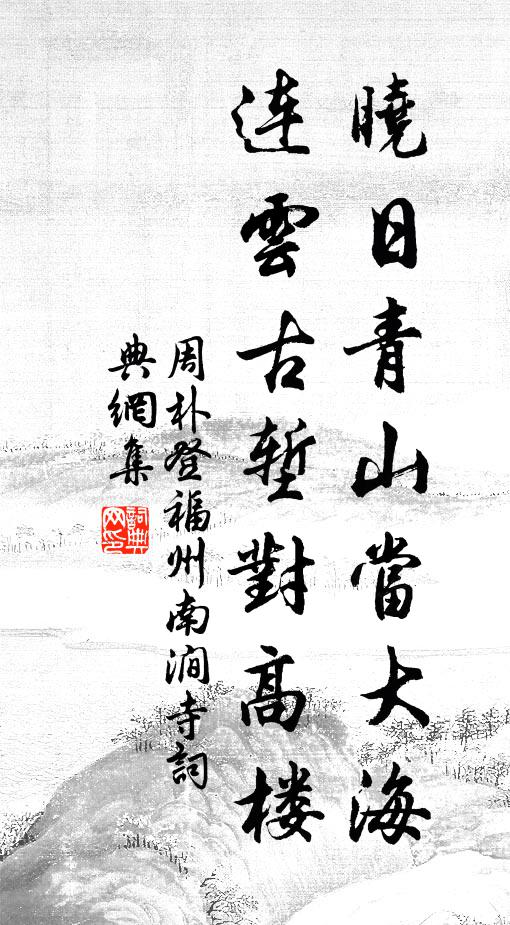 曉日青山當大海
連雲古塹對高楼
周朴登福州南澗寺詞
典網集
詞典網印